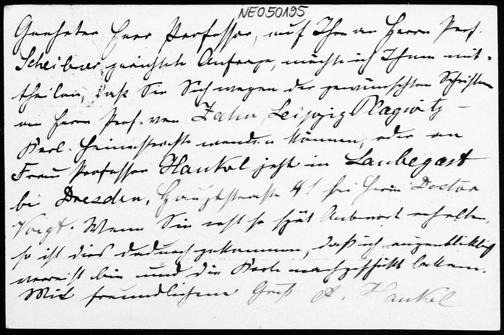 NE050195
Geehrter Herr Professor, auf Ihre an Herrn Prof.
Scheibner gerichtete Anfrage, möchte ich Ihnen mit-
theilen, daß Sie Sich wegen der gewünschten Schriften
an Herrn Prof. von Zahn, Leipzig Plagwitz –
Karl Heinestrasse wenden können, oder an
Frau Professor Hankel jetzt in Laubegast
bei Dresden, Hauptstrasse 41 bei Herrn Doctor
Voigt. Wenn Sie erst so spät Antwort erhalten,
so ist dies dadurch gekommen, daß ich augenblicklich
verreist bin und die Karte nachgeschickt bekam.
Mit freundlichem Gruß A. Hankel